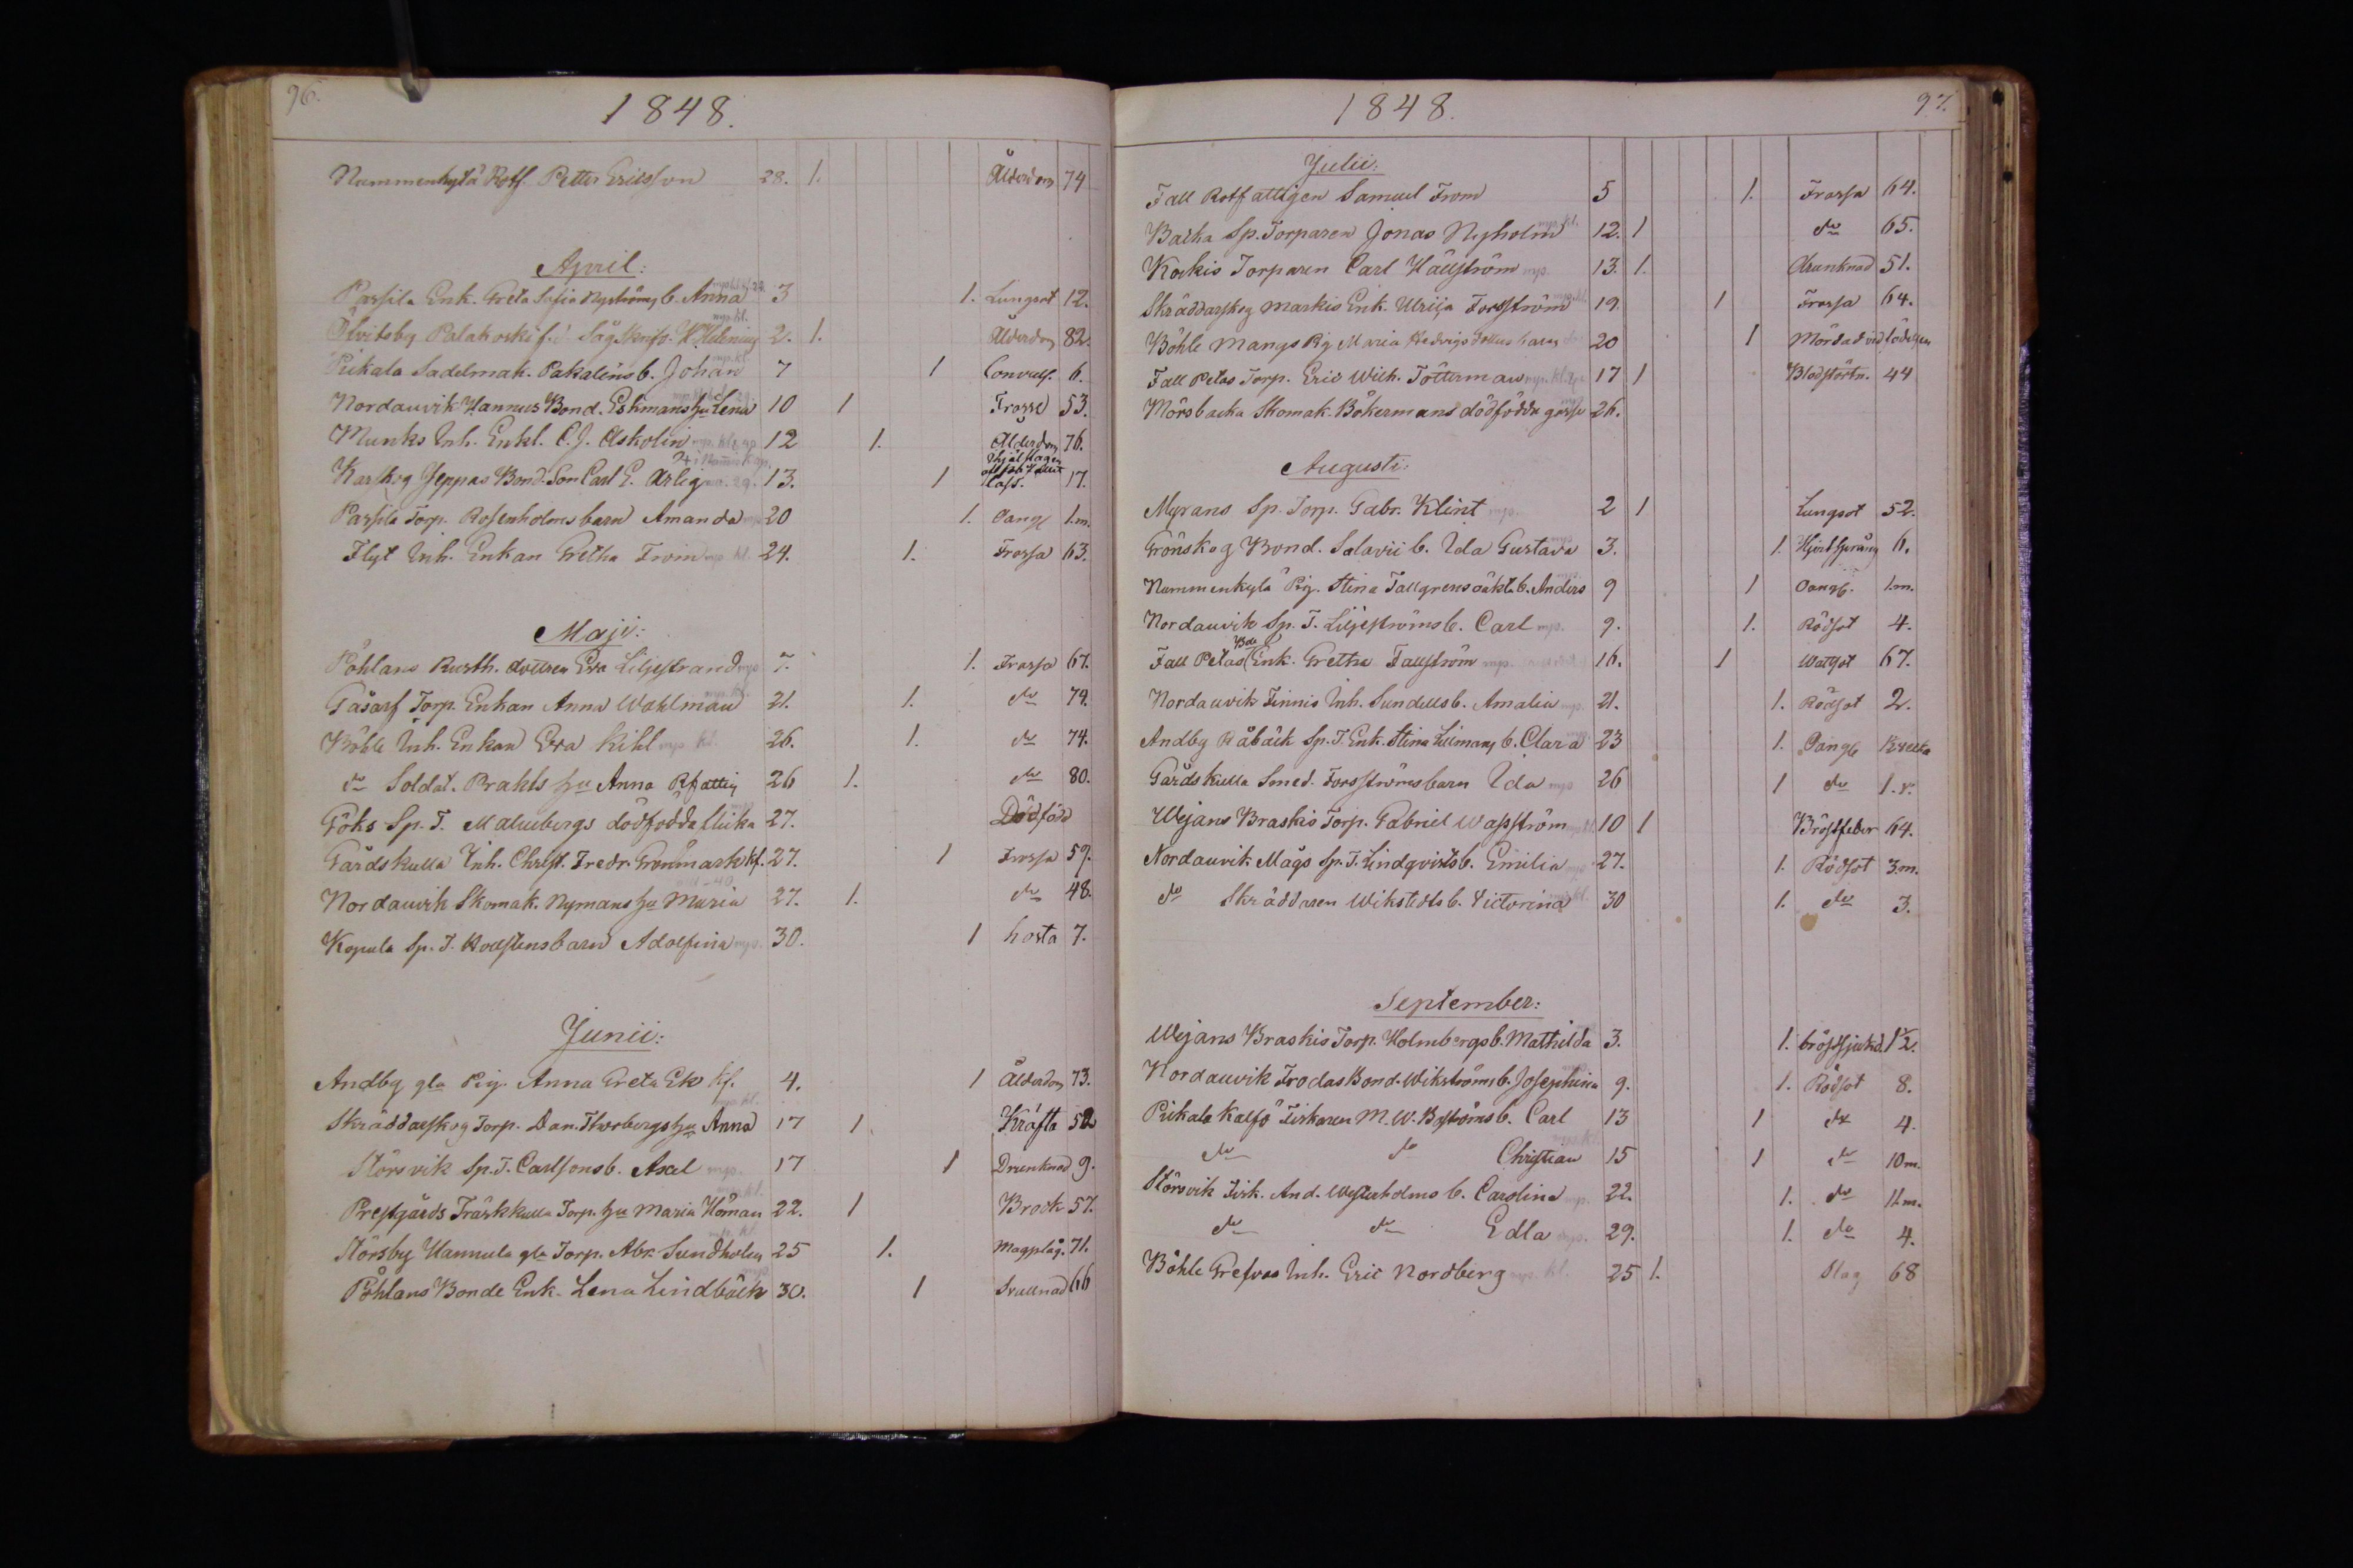 96.
1848.
Nummenkylä Rotf. Petter Ericsson 28. 1. Ålderdom 74
April:
Parsila Enk. Greta Sofia Nyströms b. Anna 3 1. Lungsot 12.
Qvitsby Palakoski f.d. Sågskrifv. H. Helenius 2. 1. Ålderdom 82.
Pikala Sadelmak. Pakaléns b. Johan 7 1 Convuls. 6.
Nordanvik Hannus Bond. Eskmans hu Lena 10 1 Frossa 53.
Munks Inh. Enkl. C. J. Askolin 12 1. Ålderdom 76.
Karskog Jeppas Bond. Son Carl E. Arlig 13. 1 ihjälslagen 17.
Parsila Torp. Rosenholms barn Amanda 20 1. Oangf 1.m.
Flyt Inh. Enkan Gretha From 24. 1. Frossa 63.
Maji:
Påhlans Rusth. dottren Eva Liljestrand 7. 1. Frossa 67.
Gåsars Torp. Enkan Anna Wahlman 21. 1. do 79.
Böhle Inh. Enkan Eva Kihl 26. 1. do 74.
do Soldat. Prakts hu Anna Rfattig 26 1. do 80.
Göks Sp. T. Malmbergs dödfödda flicka 27. Dödfödd
Gårdskulla Inh. Christ. Fredr. Grönmark kf. 27. 1 Frossa 59.
Nordanvik Skomak. Nymans hu Maria 27. 1. do 48.
Kopula Sp. T. Rodstens barn Adolfina 30. 1 hosta 7.
Junii:
Andby gla Pig. Anna Greta Ek kf. 4. 1 Ålderdom 73.
Skräddarskog Torp. Dan. Thorbergs hu Anna 17 1 Kräfta 52
Störsvik Sp. T. Carlsons b. Axel 17 1 Drunknad 9.
Prestgårds Träskkulla Torp. hu Maria Höman 22. 1 Brock 57.
Störsby Hannula gla Torp. Abr. Sundholm 25 1. Magplåg. 71.
Påhlans Bonde Enk. Lena Lindbäck 30. 1 Svullnad 66
1848.
97.
Julii:
Fall Rotfattigen Samuel From 5 1. Frossa 64.
Backa Sp. Torparen Jonas Nyholm 12. 1 do 65.
Kockis Torparen Carl Hällström 13. 1. drunknad 51.
Skräddarskog Markis Enk. Ulrica Forsström 19. 1 Frossa 64.
Böhle Mangs Pig Maria Hedvigs dotters barn 20 1 Mördad vid födelsen
Fall Petas Torp. Eric Wilh. Tötterman 17 1 Blodstörtn. 44
Mörsbacka Skomak. Bökermans dödfödda gosse 26.
Augusti:
Myrans Sp. Torp. Gabr. Klint 2 1 Lungsot 52.
Grönskog Bond. Salavii b. Ida Gustava 3. 1. Hjertsprång 6.
Nummenkylä Pig. Stina Tallgrens oäkta b. Anders 9 1 Oangf. 1.m.
Nordanvik Sp. T. Liljeströms b. Carl 9. 1. Rödsot 4.
Fall Petas Bde Enk. Gretha Fallström 16. 1 Watsot 67.
Nordanvik Finnis Inh. Sundells b. Amalia 21. 1. Rödsot 2.
Andby Råbäck Sp. T. Enk. Stina Lillmans b. Clara 23 1. Oangf 1½ vecka
Gårdskulla Smed. Forsströms barn Ida 26 1 do 1.v.
Wejans Braskis Torp. Gabriel Wasström 10 1 Bröstfeber 64.
Nordanvik Mågs Sp. T. Lindqvists b. Emilia 27. 1. Rödsot 3.m.
do Skräddaren Wikstedts b. Victorina 30 1. do 3.
September:
Wejans Braskis Torp. Holmbergs b. Mathilda 3. 1. bröstsjukd. 12.
Nordanvik Frodas Bond. Wikströms b. Josephina 9. 1. Rödsot 8.
Pikala Kalfö Fiskaren M. W. Boströms b. Carl 13 1 do 4.
do do Christian 15 1 do 10m.
Störsvik Fisk. And. Westerholms b. Carolina 22. 1. do 11.m.
do do Edla 29. 1. do 4.
Böhle Grefvas Inh. Eric Nordberg 25 1. Slag 68